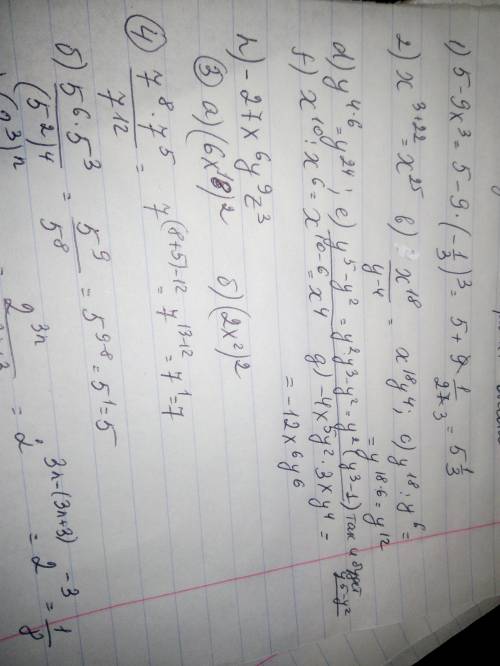 1) 5-9x³ = 5-9·(-1/3)³ = 5+9·1/27 = 5 1/3
2) x³⁺²² = x²⁵ b) x¹⁸/y⁻⁴ = x¹⁸y⁴; c) y¹⁸:y⁶ =
= y¹⁸⁻⁶ = y¹²
d) y⁴·⁶ = y²⁴; e) y⁵-y² = y²·y³-y² = y²(y³-1) так и будет y⁵-y²
f) x¹⁰:x⁶ = x¹⁰⁻⁶ = x⁴ g) -4x⁵y²·3xy⁴ =
= -12x⁶y⁶
h) -27x⁶y⁹z³
③ a) (6x¹⁸)² б) (2x²)²
④ 7⁸·7⁵/7¹² = 7⁽⁸⁺⁵⁾⁻¹² = 7¹³⁻¹² = 7¹ = 7
б) 5⁶·5³/(5²)⁴ = 5⁹/5⁸ = 5⁹⁻⁸ = 5¹ = 5
2³ⁿ = 2³ⁿ⁻⁽³ⁿ⁺³⁾ = 2⁻³ = 1/8